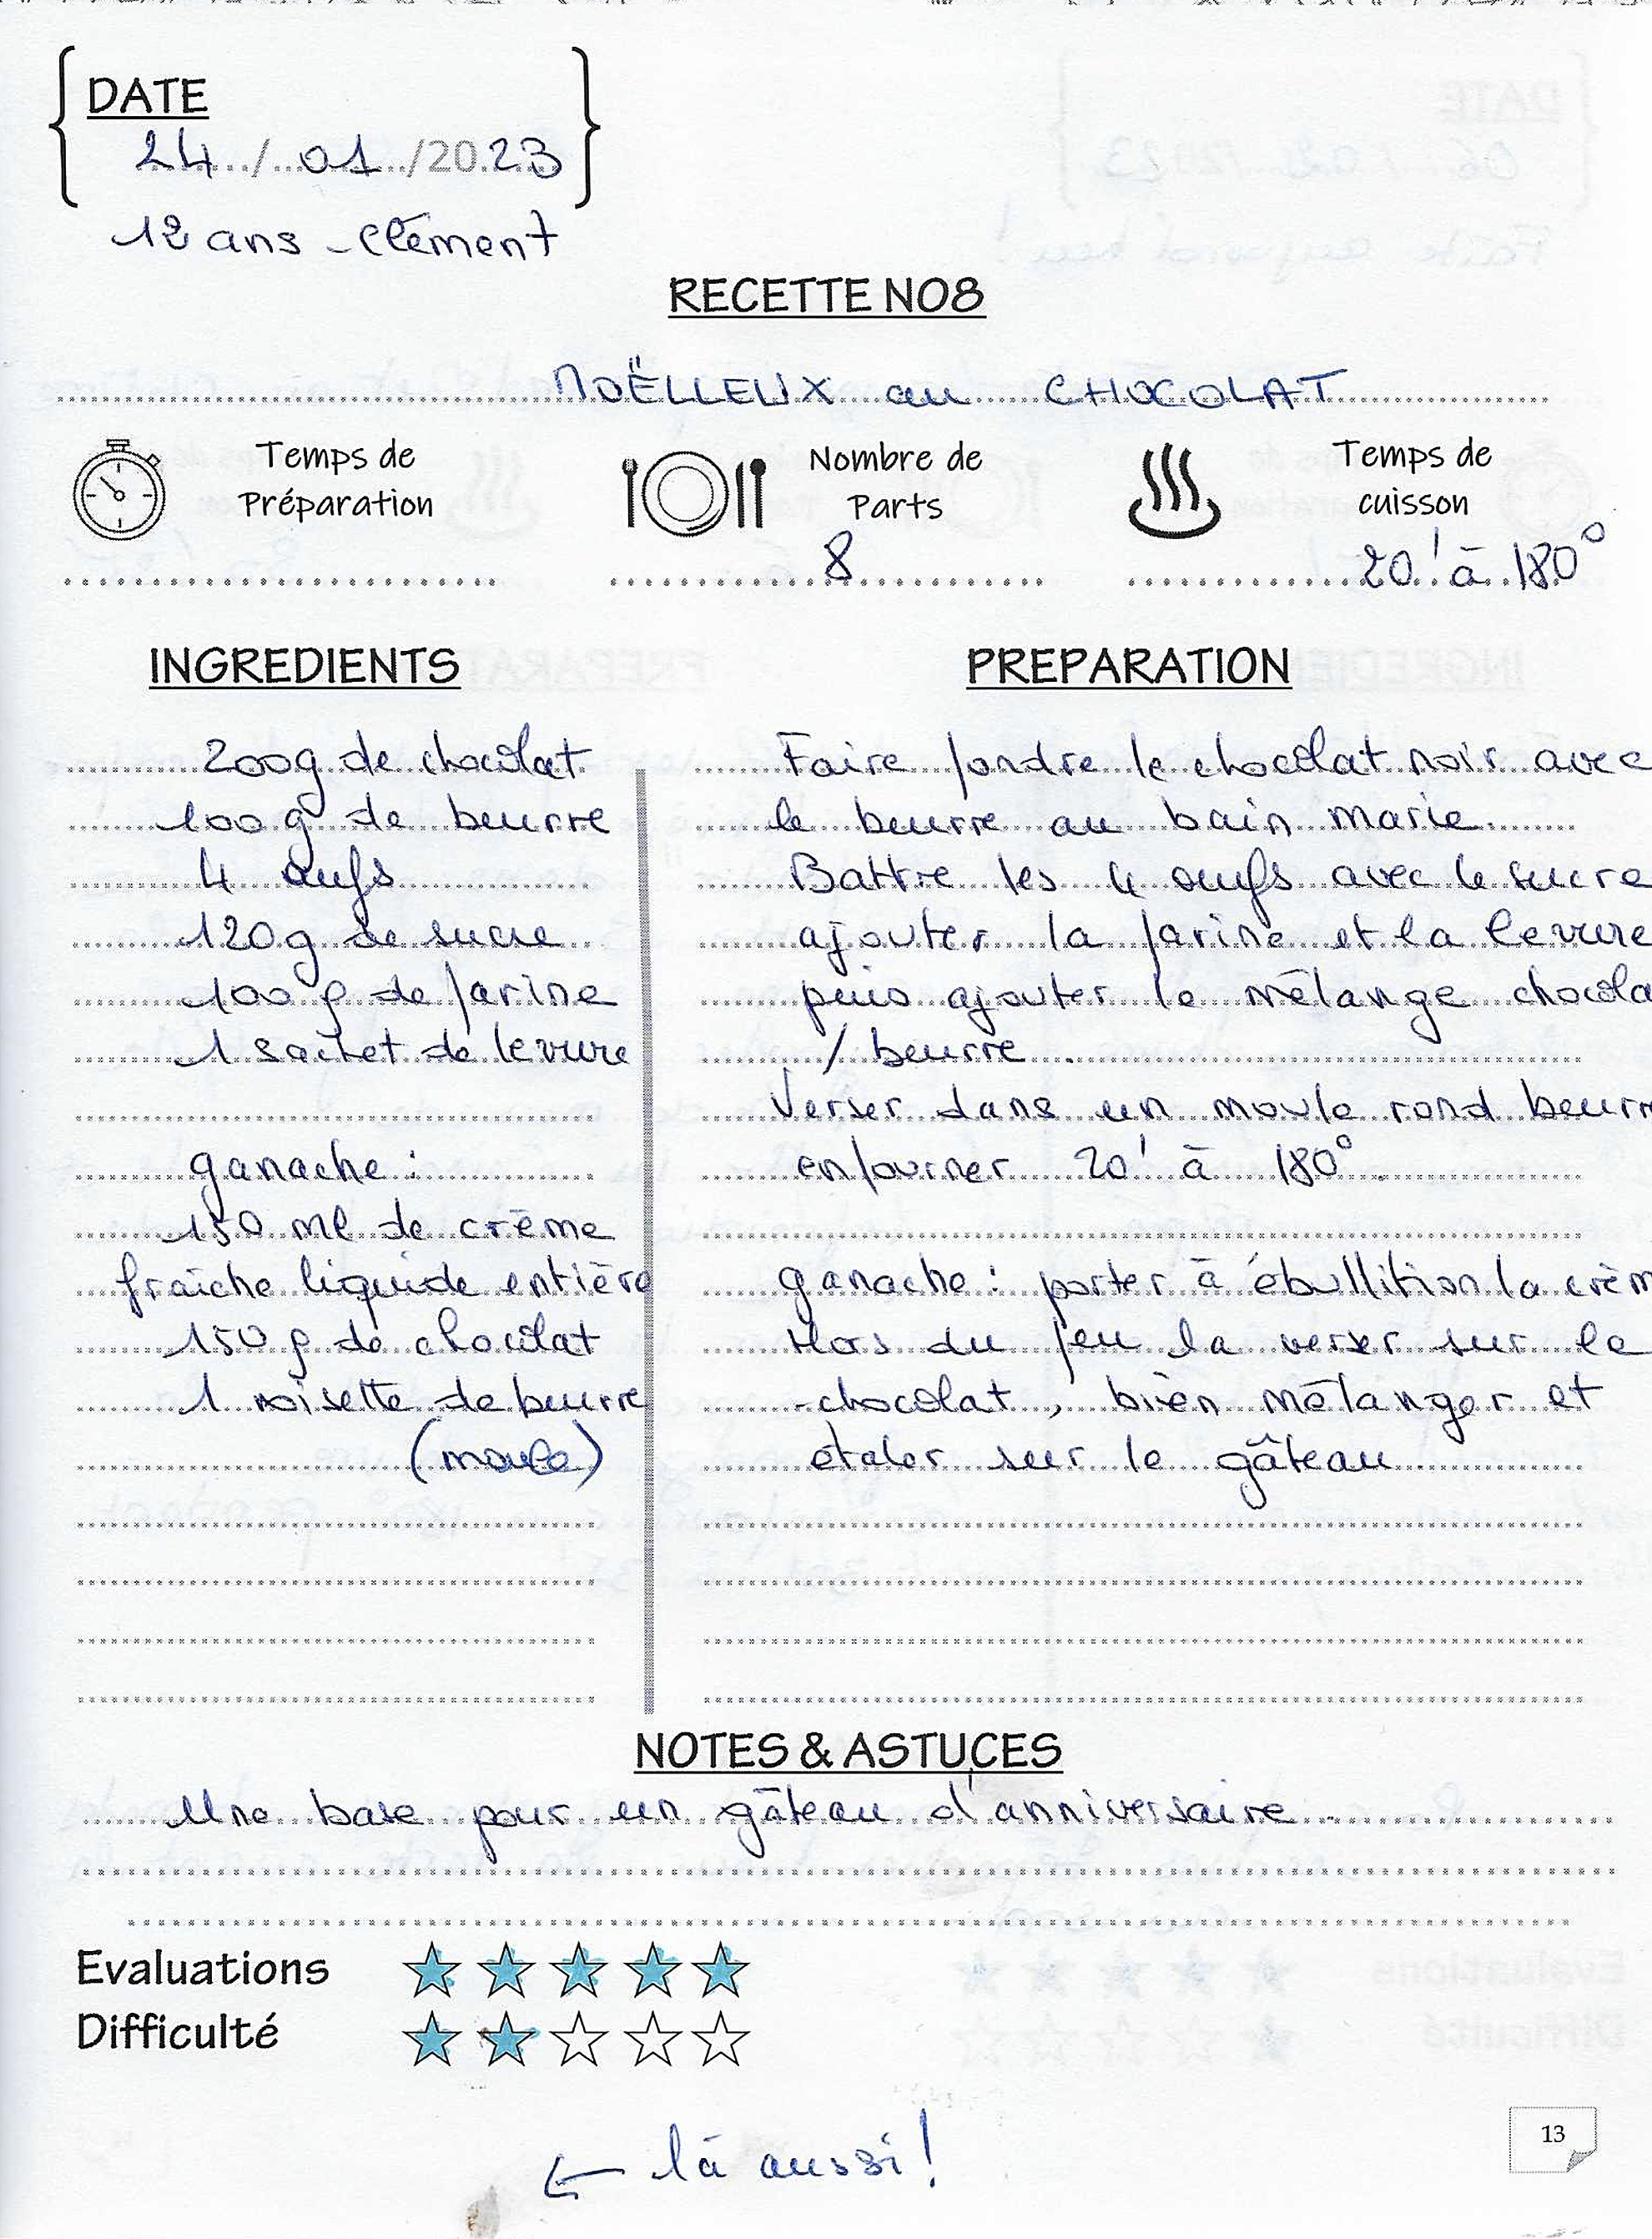 DATE
24/01/2023
12 ans - Clément
RECETTE NO8
MOËLLEUX au CHOCOLAT
Temps de Préparation
Nombre de Parts
8
Temps de cuisson
20' à 180°
INGREDIENTS
200g de chocolat
100 g de beurre
4 œufs
120g de sucre
100 g de farine
1 sachet de levure
ganache :
150 ml de crème
fraîche liquide entière
150 g de chocolat
1 noisette de beurre
(moule)
PREPARATION
Faire fondre le chocolat noir avec
le beurre au bain marie
Battre les 4 oeufs avec le sucre
ajouter la farine et la levure
puis ajouter le mélange chocola
/ beurre.
Verser dans un moule rond beurr
enfourner 20' à 180°.
ganache : porter à ébullition la crèm
Hors du feu la verser sur le
chocolat, bien mélanger et
étaler sur le gâteau
NOTES & ASTUCES
Une base pour un gâteau d'anniversaire.
Evaluations
Difficulté
← là aussi !
13